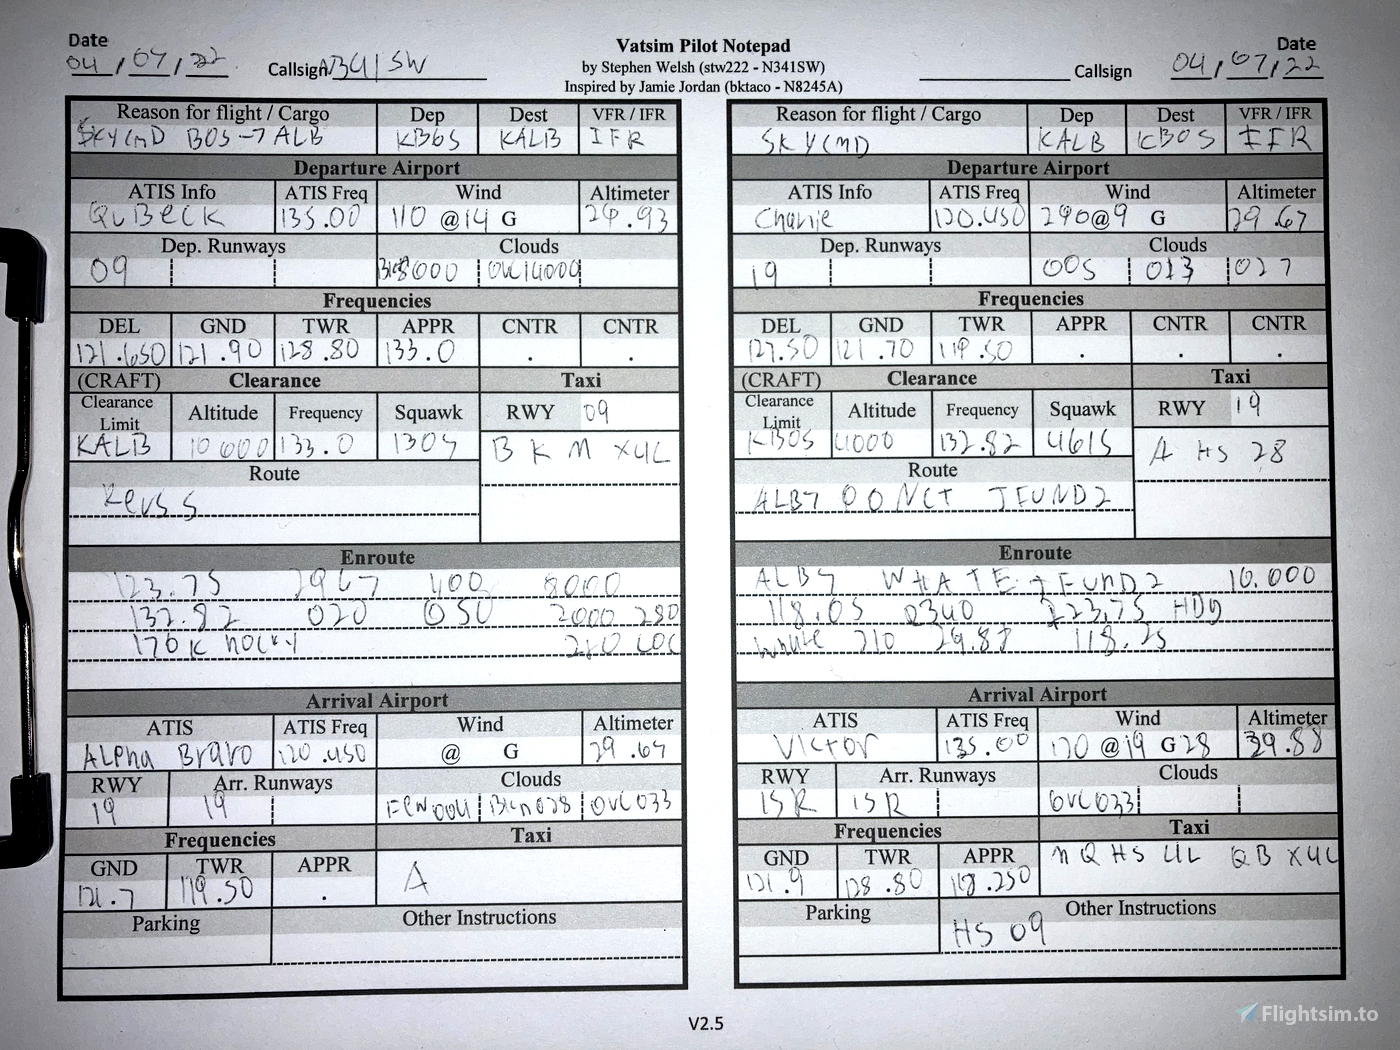 Date
04/07/22
Callsign
Vatsim Pilot Notepad
by Stephen Welsh (stw222 - N341SW)
Inspired by Jamie Jordan (bktaco - N8245A)
Callsign
Date
04/07/22
Reason for flight / Cargo Dep Dest VFR / IFR
SKYCMD BOS→ALB KBOS KALB IFR
Departure Airport
ATIS Info ATIS Freq Wind Altimeter
QuBeck 135.00 110 @14 G 29.93
Dep. Runways Clouds
09 OVC14000
Frequencies
DEL GND TWR APPR CNTR CNTR
121.650 121.90 128.80 133.0 . .
(CRAFT) Clearance Taxi
Clearance Limit Altitude Frequency Squawk RWY 09
KALB 10000 133.0 B K M X4L
Route
Enroute
123.75 2967 400 8000
132.82 020 050 2000 280
170K LOC
Arrival Airport
ATIS ATIS Freq Wind Altimeter
Alpha Bravo 120.450 @ G 29.67
RWY Arr. Runways Clouds
19 19 Few004 Bkn028 OVC033
Frequencies Taxi
GND TWR APPR
121.7 119.50 . A
Parking Other Instructions
Reason for flight / Cargo Dep Dest VFR / IFR
SKYCMD KALB KBOS IFR
Departure Airport
ATIS Info ATIS Freq Wind Altimeter
Charlie 120.450 290@9 G 29.67
Dep. Runways Clouds
19 005 013 027
Frequencies
DEL GND TWR APPR CNTR CNTR
127.50 121.70 119.50 . . .
(CRAFT) Clearance Taxi
Clearance Limit Altitude Frequency Squawk RWY 19
KBOS 4000 132.82 4615 A HS 28
Route
ALB7 OONCT JFUND2
Enroute
ALB7 WHATE JFUND2 10.000
118.05 0340 123.75 HDG
210 29.88 118.25
Arrival Airport
ATIS ATIS Freq Wind Altimeter
Victor 135.00 120 @19 G28 29.88
RWY Arr. Runways Clouds
15R 15R OVC033
Frequencies Taxi
GND TWR APPR N Q HS 4L QB X4L
121.9 128.80 118.250
Parking Other Instructions
HS 09
V2.5
Flightsim.to